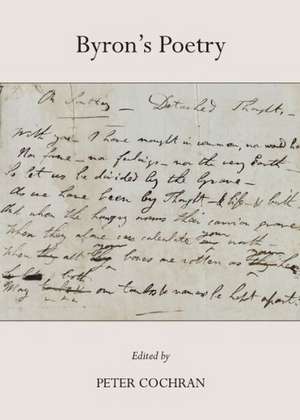 Byron's Poetry
Detached Thoughts —
With you I have nought in common, nor would ha
Nor fame — no feelings — nor the very Earth —
So let us be divided by the Grave —
As we have been by Thought — & life — & birth
And when the hungry worms their carrion
When they alone can calculate your worth —
When your bones are rotten as
both
May our tombs & names be kept apart.
Edited by
PETER COCHRAN